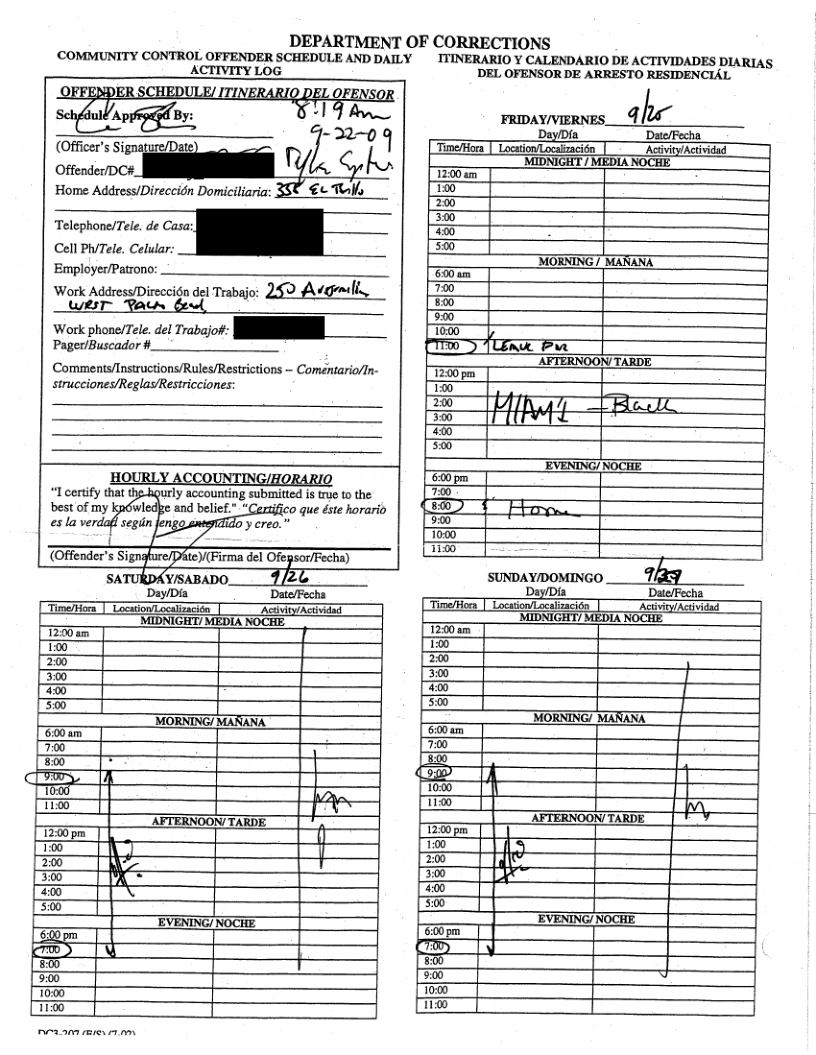 DEPARTMENT OF CORRECTIONS
COMMUNITY CONTROL OFFENDER SCHEDULE AND DAILY ACTIVITY LOG
ITINERARIO Y CALENDARIO DE ACTIVIDADES DIARIAS DEL OFENSOR DE ARRESTO RESIDENCIÁL
OFFENDER SCHEDULE/ ITINERARIO DEL OFENSOR
Schedule Approved By: 8:19 Am
9-22-09
(Officer's Signature/Date)
Offender/DC#
Home Address/Dirección Domiciliaria: 358 EL
Telephone/Tele. de Casa:
Cell Ph/Tele. Celular:
Employer/Patrono:
Work Address/Dirección del Trabajo: 250
WEST PALM
Work phone/Tele. del Trabajo#:
Pager/Buscador #
Comments/Instructions/Rules/Restrictions – Comentario/In-
strucciones/Reglas/Restricciones:
HOURLY ACCOUNTING/HORARIO
"I certify that the hourly accounting submitted is true to the
best of my knowledge and belief." "Certifico que éste horario
es la verdad según tengo entendido y creo."
(Offender's Signature/Date)/(Firma del Ofensor/Fecha)
FRIDAY/VIERNES 9/25
Day/Día Date/Fecha
Time/Hora Location/Localización Activity/Actividad
MIDNIGHT / MEDIA NOCHE
12:00 am
1:00
2:00
3:00
4:00
5:00
MORNING / MAÑANA
6:00 am
7:00
8:00
9:00
10:00
11:00 LEAVE
AFTERNOON/ TARDE
12:00 pm
1:00
2:00 MIAMI – Black
3:00
4:00
5:00
EVENING/ NOCHE
6:00 pm
7:00
8:00 Home
9:00
10:00
11:00
SATURDAY/SABADO 9/26
Day/Día Date/Fecha
Time/Hora Location/Localización Activity/Actividad
MIDNIGHT/ MEDIA NOCHE
12:00 am
1:00
2:00
3:00
4:00
5:00
MORNING/ MAÑANA
6:00 am
7:00
8:00
9:00
10:00
11:00
AFTERNOON/ TARDE
12:00 pm
1:00
2:00
3:00
4:00
5:00
EVENING/ NOCHE
6:00 pm
7:00
8:00
9:00
10:00
11:00
SUNDAY/DOMINGO
Day/Día Date/Fecha
Time/Hora Location/Localización Activity/Actividad
MIDNIGHT/ MEDIA NOCHE
12:00 am
1:00
2:00
3:00
4:00
5:00
MORNING/ MAÑANA
6:00 am
7:00
8:00
9:00
10:00
11:00
AFTERNOON/ TARDE
12:00 pm
1:00
2:00
3:00
4:00
5:00
EVENING/ NOCHE
6:00 pm
7:00
8:00
9:00
10:00
11:00
DC3-207 (E/S) (7-02)